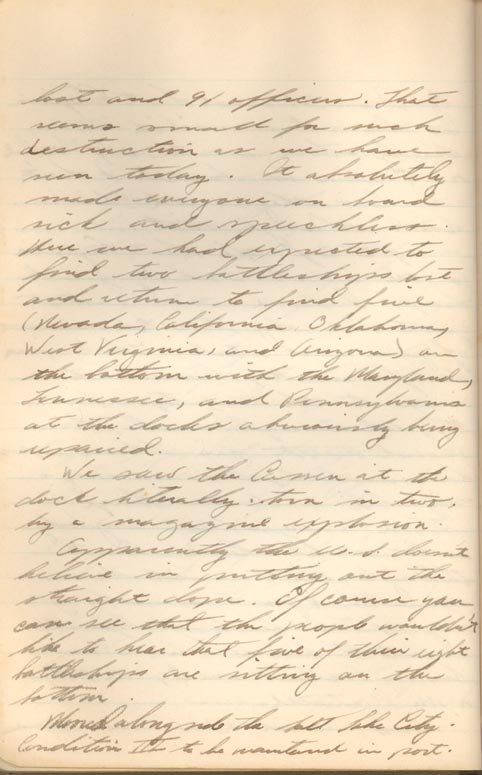 lost and 91 officers. That
seems small for such
destruction as we have
seen today. It absolutely
made everyone on board
sick and speechless.
Here we had expected to
find two battleships lost
and return to find five
(Nevada, California, Oklahoma,
West Virginia, and Arizona) on
the bottom with the Maryland,
Tennessee, and Pennsylvania
at the docks obviously being
repaired.
We saw the Cassin at the
dock literally torn in two
by a magazine explosion.
Apparently the U.S. doesn't
believe in putting out the
straight dope. Of course you
can see that the people wouldn't
like to hear that five of their eight
battleships are sitting on the
bottom.
Moved alongside the Salt Lake City.
Condition to be maintained in port.